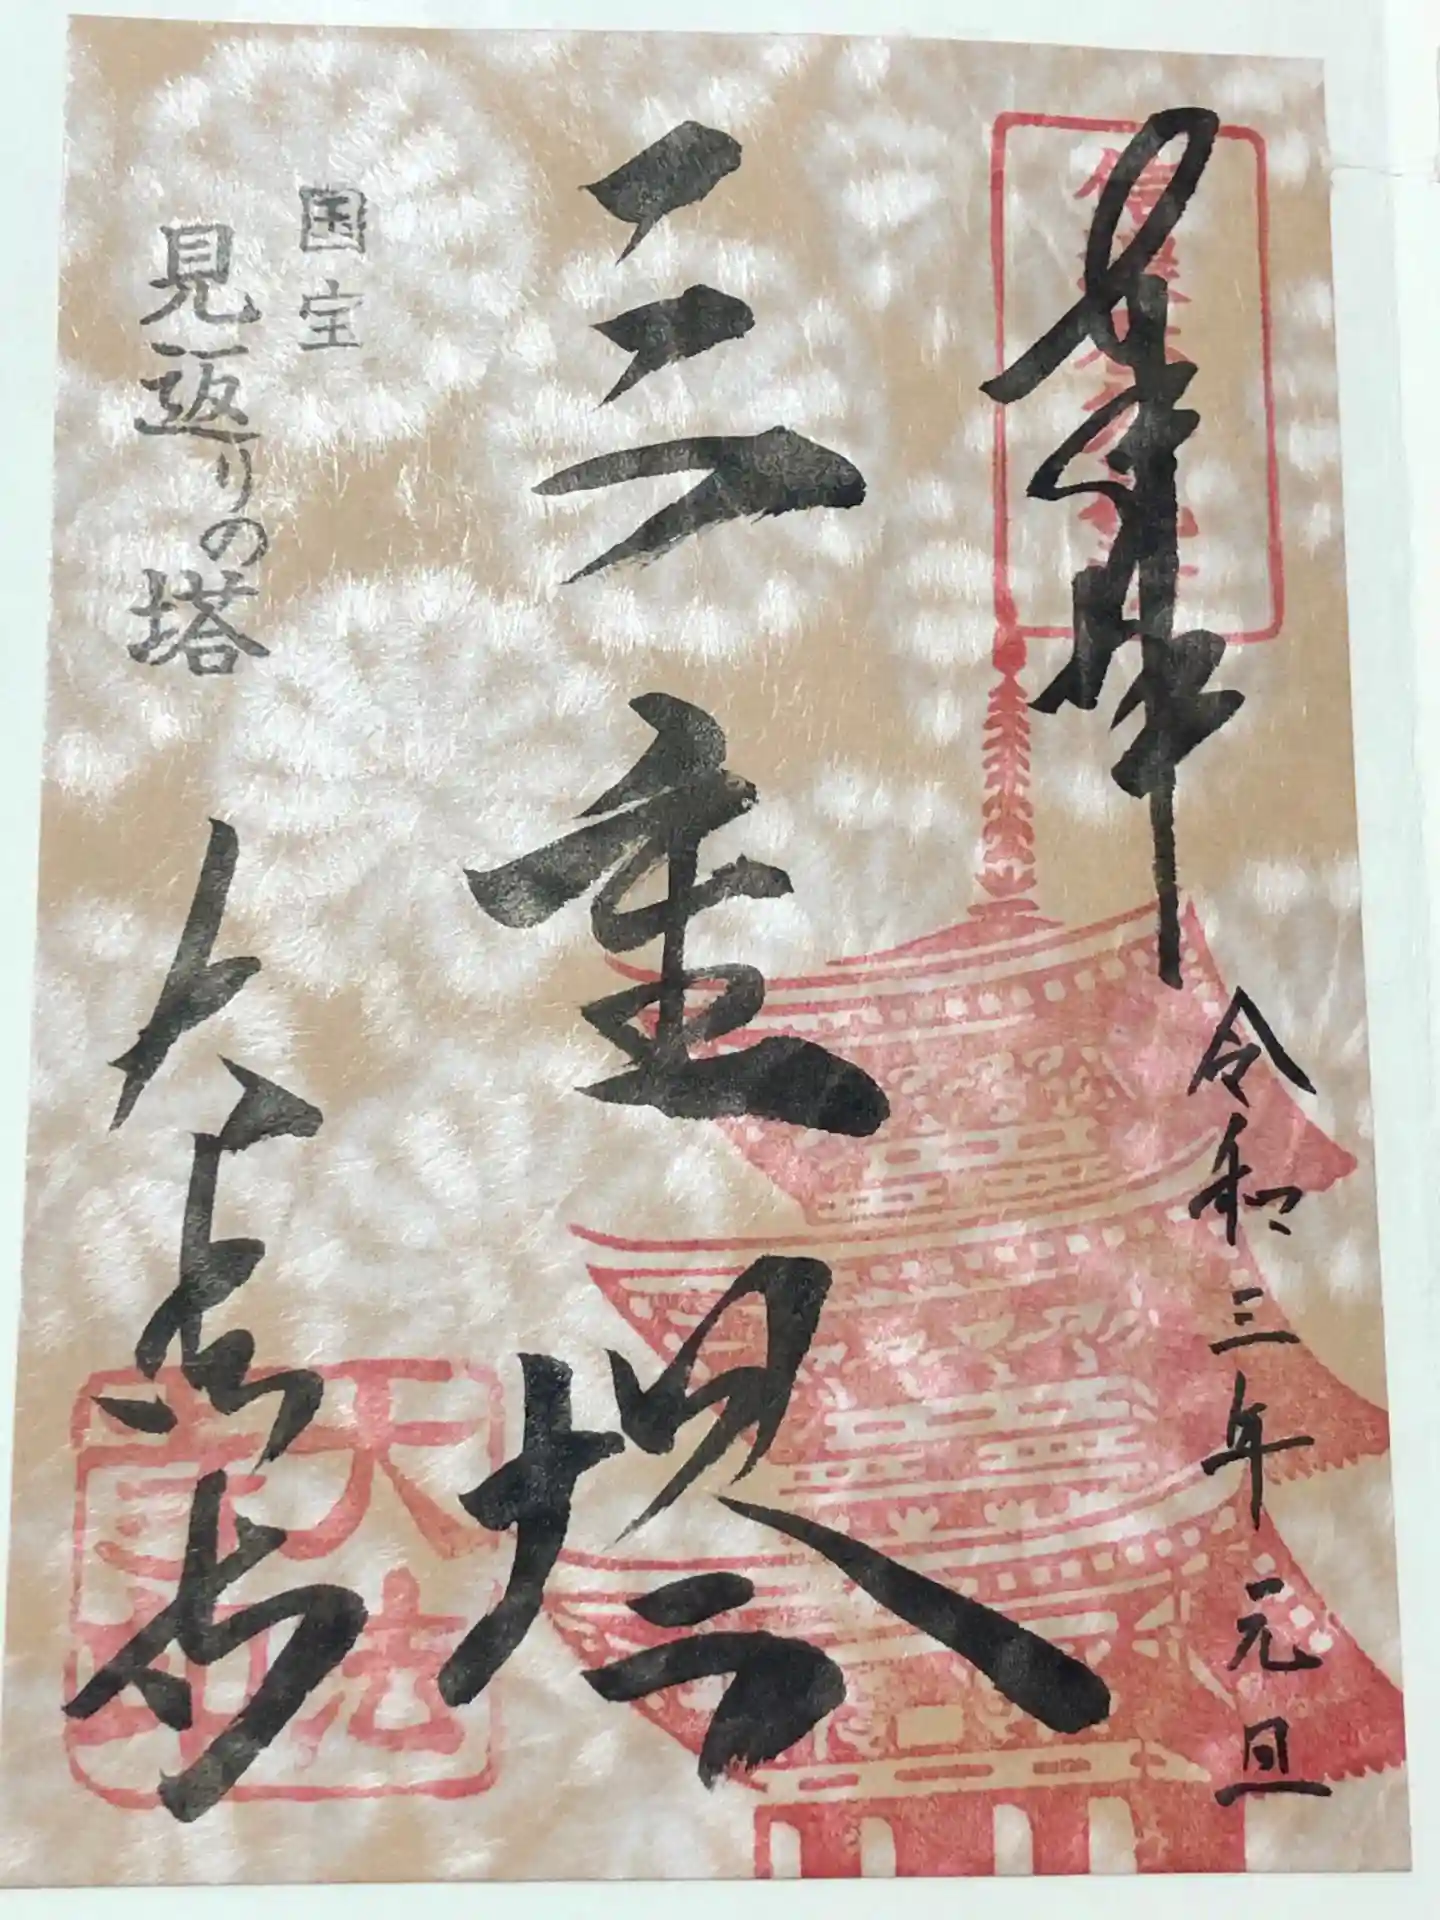 奉拝
令和三年元旦
三重塔
国宝
見返りの塔
大法寺
大法
寺印